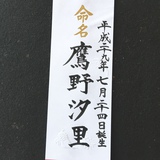 命名
鷹野汐里
平成二十九年七月二十四日誕生